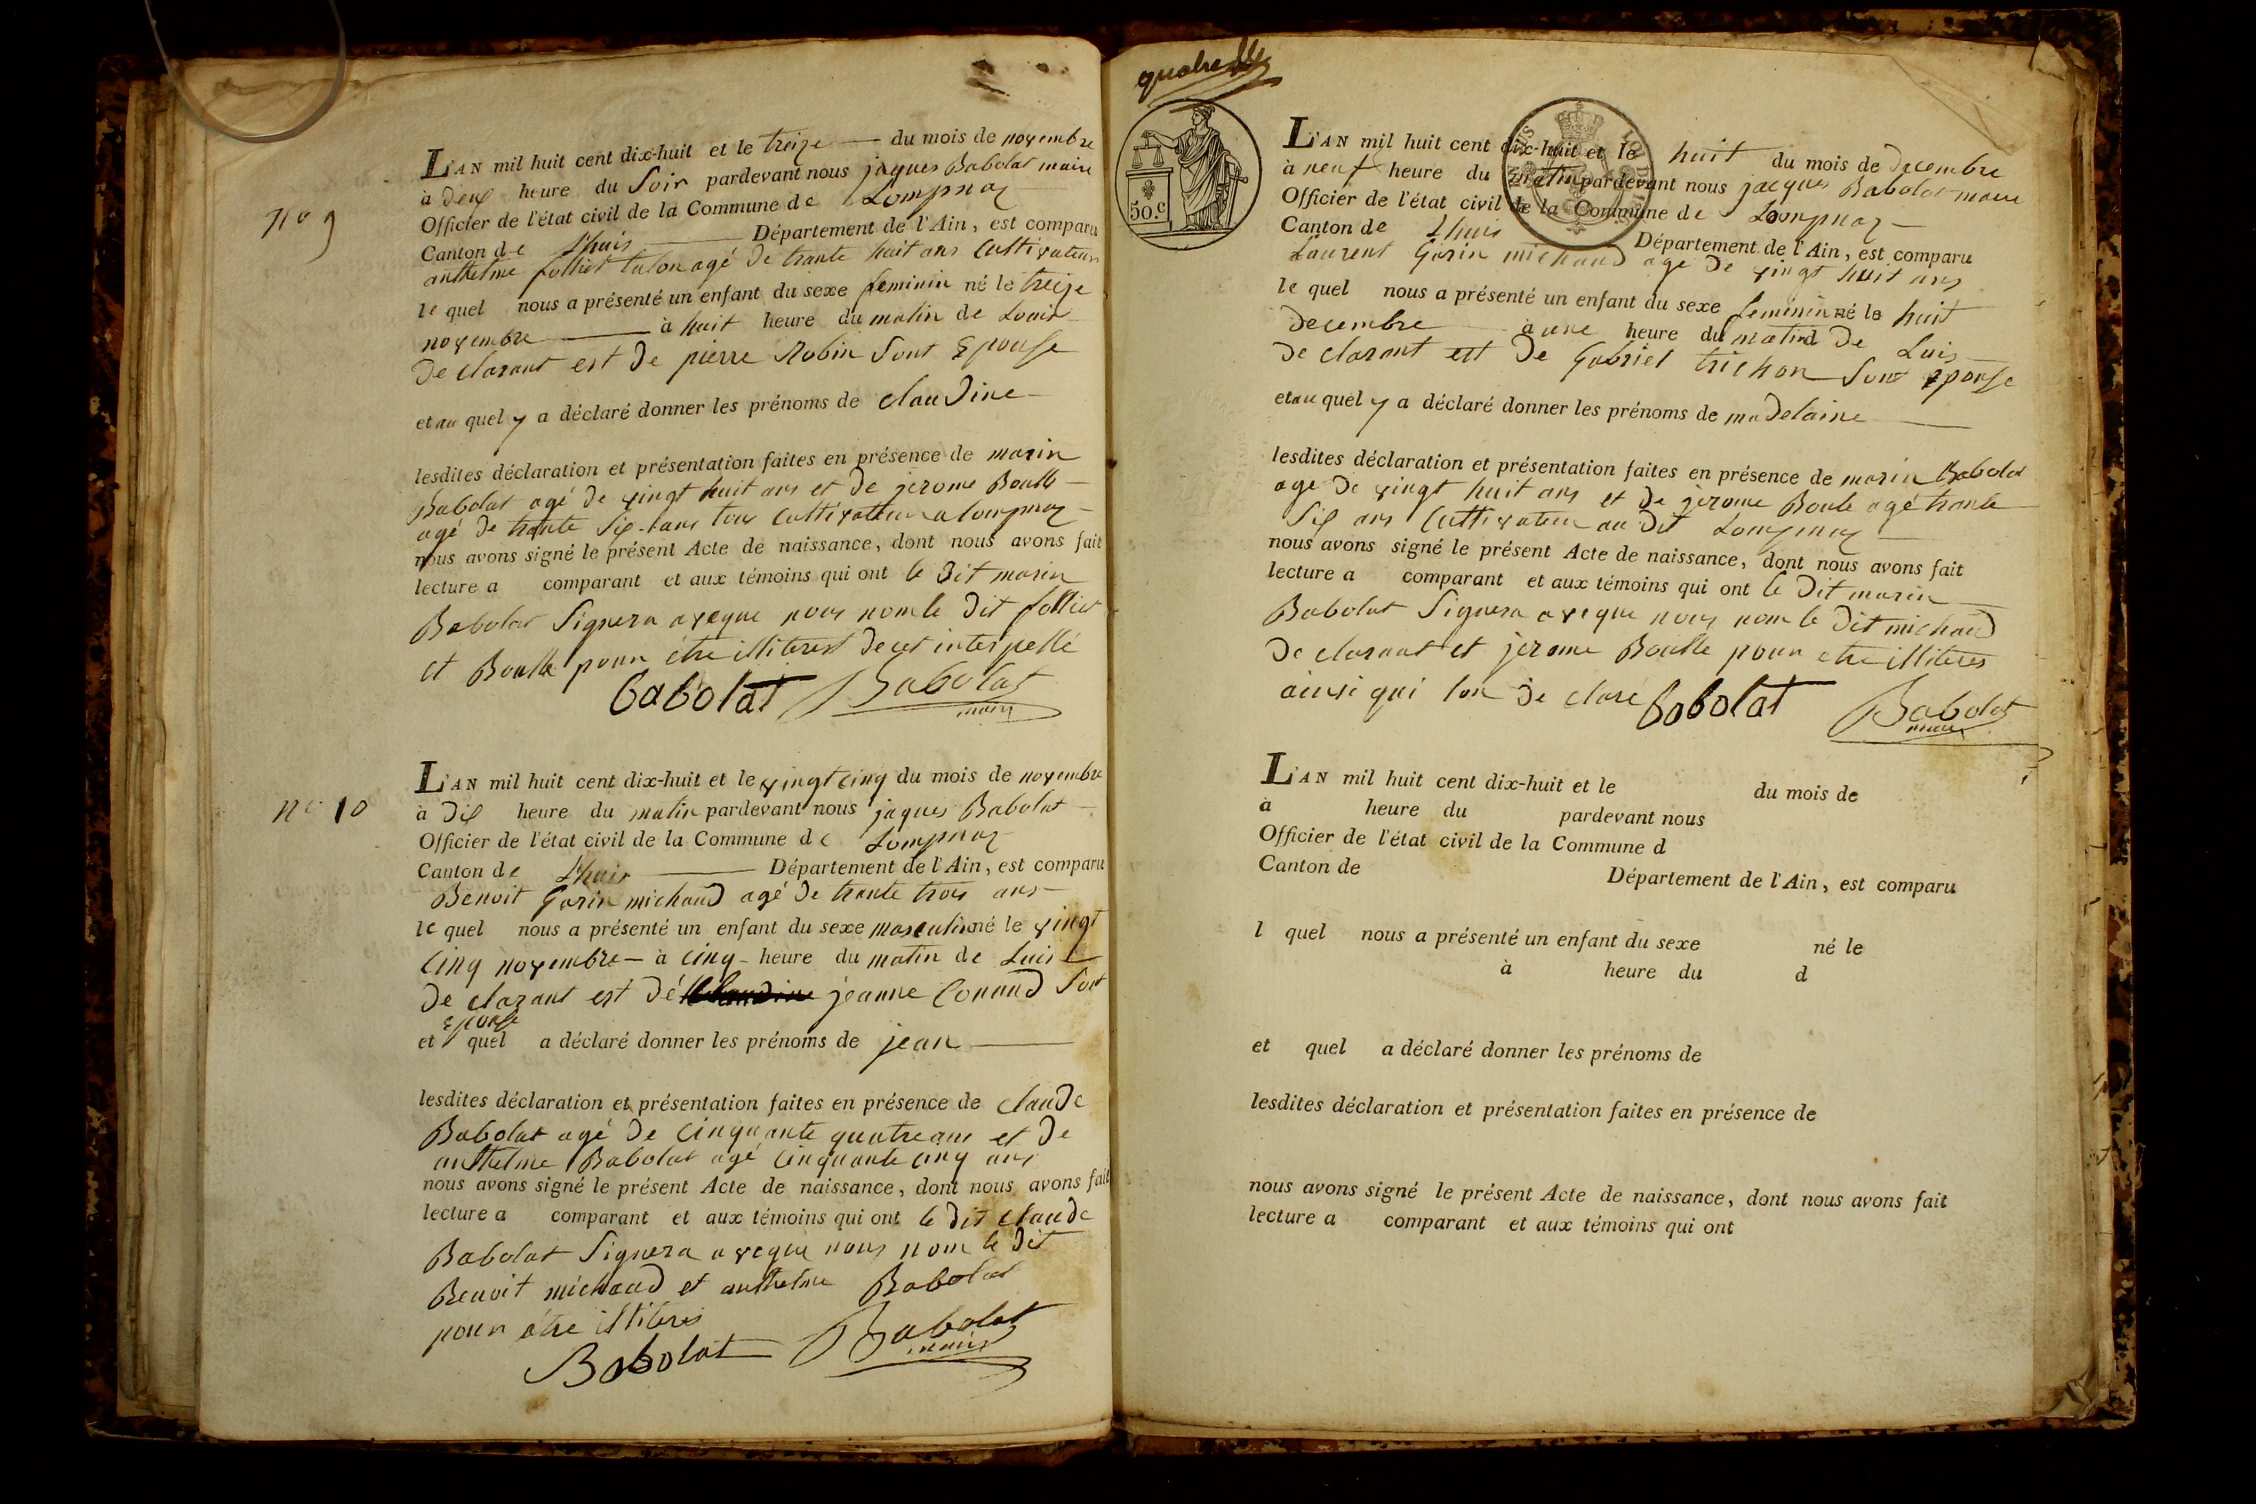 No 9
L'AN mil huit cent dix-huit et le treize du mois de novembre
à deux heure du Soir pardevant nous jaques Babolat maire
Officier de l'état civil de la Commune de Lompnaz
Canton de Lhuis Département de l'Ain, est comparu
anthelme folliet talon agé de trante huit ans Cultivateur
le quel nous a présenté un enfant du sexe feminin né le treize
novembre à huit heure du matin de Louis
de clarant est de pierre Robin Sont Epouse
et au quel y a déclaré donner les prénoms de claudine
lesdites déclaration et présentation faites en présence de marin
Babolat agé de vingt huit ans et de jerome Boulle
agé de trante Six ans tous Cultivateur a lompnaz
nous avons signé le présent Acte de naissance, dont nous avons fait
lecture a comparant et aux témoins qui ont le dit marin
Babolat Signera aveque nous nom le dit folliet
et Boulle pour être illiterest de cet interpellé
babolat Babolat
maire
No 10
L'AN mil huit cent dix-huit et le vingt cinq du mois de novembre
à dix heure du matin pardevant nous jaques Babolat
Officier de l'état civil de la Commune de Lompnaz
Canton de Lhuis Département de l'Ain, est comparu
Benoit Gorin michaud agé de trante trois ans
le quel nous a présenté un enfant du sexe masculin né le vingt
Cinq novembre à Cinq heure du matin de Luis
de clarant est dé jeanne Conand Sont
Epouse
et quel a déclaré donner les prénoms de jean
lesdites déclaration et présentation faites en présence de claude
Babolat agé de Cinquante quatre ans et de
anthelme Babolat agé Cinquante cinq ans
nous avons signé le présent Acte de naissance, dont nous avons fait
lecture a comparant et aux témoins qui ont le dit claude
Babolat Signera aveque nous nom le dit
Benoit michaud et anthelme Babolat
pour être illiteres
Babolat Babolat
maire
quatre
50.c
L'AN mil huit cent dix-huit et le huit du mois de decembre
à neuf heure du matin pardevant nous jacques Babolat maire
Officier de l'état civil de la Commune de Lompnaz
Canton de Lhuis Département de l'Ain, est comparu
Laurent Gorin michaud agé de vingt huit ans
le quel nous a présenté un enfant du sexe feminin né le huit
decembre à une heure du matin de Luis
de clarant est de Gabriel trichon Sont epouse
et au quel y a déclaré donner les prénoms de madelaine
lesdites déclaration et présentation faites en présence de marin Babolat
age de vingt huit ans et de jerome Boule agé trante
Six ans Cultivateur au dit Lompnaz
nous avons signé le présent Acte de naissance, dont nous avons fait
lecture a comparant et aux témoins qui ont le dit marin
Babolat Signera aveque nous nom le dit michaud
de clarant et jerome Boulle pour etre illiteres
ainsi qui lon de claré babolat Babolat
maire
L'AN mil huit cent dix-huit et le du mois de
à heure du pardevant nous
Officier de l'état civil de la Commune d
Canton de Département de l'Ain, est comparu
l quel nous a présenté un enfant du sexe né le
à heure du d
et quel a déclaré donner les prénoms de
lesdites déclaration et présentation faites en présence de
nous avons signé le présent Acte de naissance, dont nous avons fait
lecture a comparant et aux témoins qui ont